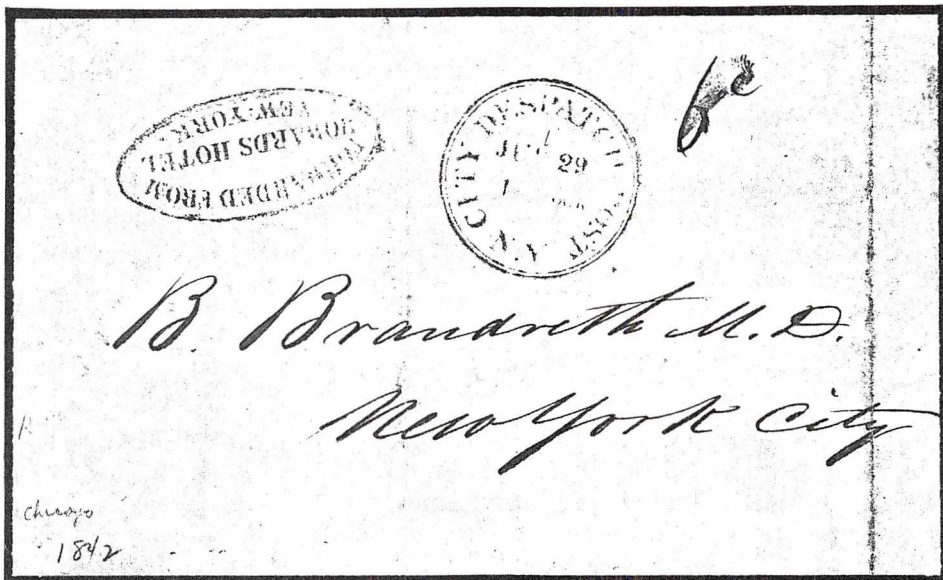 FORWARDED FROM
HOWARDS HOTEL
NEW-YORK
CITY DESPATCH POST
29
B. Brandreth M.D.
New York City
Chicago
1842